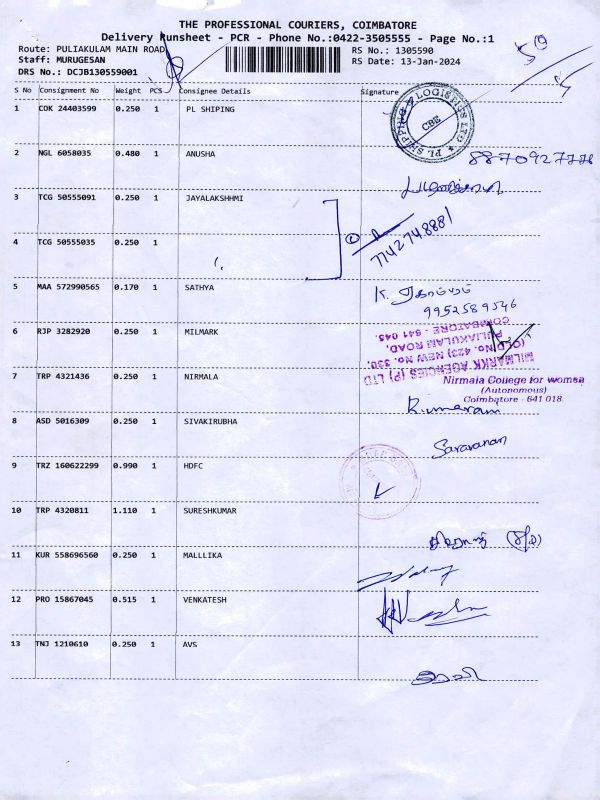 THE PROFESSIONAL COURIERS, COIMBATORE
Delivery Runsheet - PCR - Phone No.:0422-3505555 - Page No.:1
Route: PULIAKULAM MAIN ROAD
RS No.: 1305590
Staff: MURUGESAN
RS Date: 13-Jan-2024
DRS No.: DCJB130559001
S No Consignment No Weight PCS Consignee Details Signature
1 COK 24403599 0.250 1 PL SHIPING
PL SHIPPING & LOGISTICS LTD
CBE
2 NGL 6058035 0.480 1 ANUSHA
3 TCG 50555091 0.250 1 JAYALAKSHHMI
7742748881
4 TCG 50555035 0.250 1
5 MAA 572990565 0.170 1 SATHYA
9952589546
6 RJP 3282920 0.250 1 MILMARK
MILMARKK AGENCIES (P) LTD
(OLD No. 423) NEW No. 330,
PULIAKULAM ROAD,
COIMBATORE - 641 045.
7 TRP 4321436 1 NIRMALA
Nirmala College for women
(Autonomous)
Coimbatore - 641 018.
8 ASD 5016309 0.250 1 SIVAKIRUBHA
Saravanan
9 TRZ 160622299 0.990 1 HDFC
10 TRP 4320811 1.110 1 SURESHKUMAR
11 KUR 558696560 0.250 1 MALLLIKA
12 PRO 15867045 0.515 1 VENKATESH
13 TNJ 1210610 0.250 1 AVS